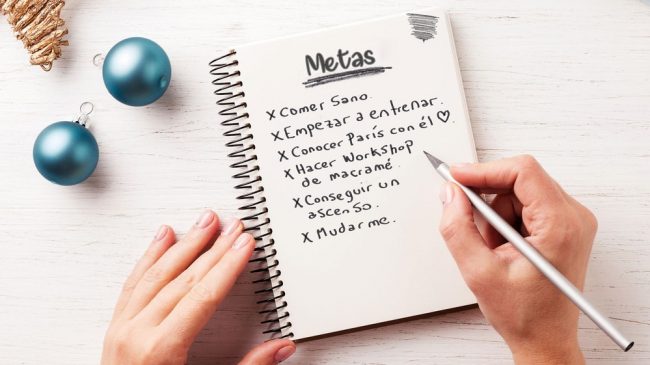 Metas
X Comer Sano.
X Empezar a entrenar.
X Conocer París con él ♡
X Hacer Workshop
de macramé.
X Conseguir un
ascenso.
X Mudarme.